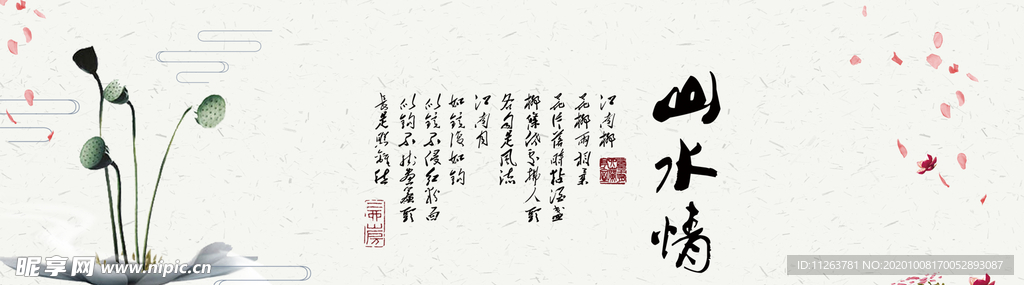 山水情
江南柳
花柳两相柔
花片落时黏酒盏
柳条低处拂人头
各自是风流
江南月
如镜复如钩
似镜不侵红粉面
似钩不挂画帘头
长是照离愁
昵享网 www.nipic.cn
ID:11263781 NO:20201008170052893087